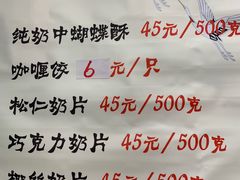 纯奶中蝴蝶酥 45元/500克
咖喱饺 6元/只
松仁奶片 45元/500克
巧克力奶片 45元/500克
奶片 45元/500克